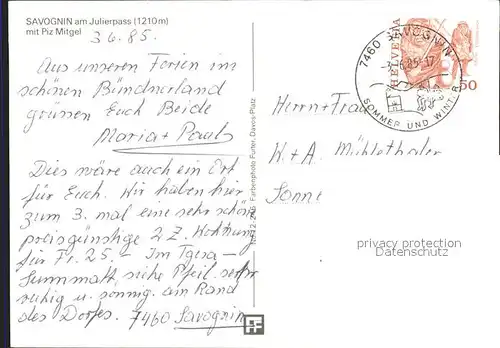 SAVOGNIN am Julierpass (1210 m)
mit Piz Mitgel
3.6.85.
Aus unseren Ferien im
schönen Bündnerland
grüssen Euch Beide
Maria + Paul
Dies wäre auch ein Ort
für Euch. Wir haben hier
zum 3. mal eine sehr schöne
preisgünstige 2 Z. Wohnung
für Fr. 25.- Im Tgesa-
Summatt, siehe Pfeil. sehr
ruhig u. sonnig. am Rand
des Dorfes. 7460 Savognin
Farbenphoto Furter, Davos-Platz
7460 SAVOGNIN
-3.-6.85-17
SOMMER UND WINTER
HELVETIA
50
Herrn + Frau
K + A. Mühlethaler
Sonne
privacy protection
Datenschutz